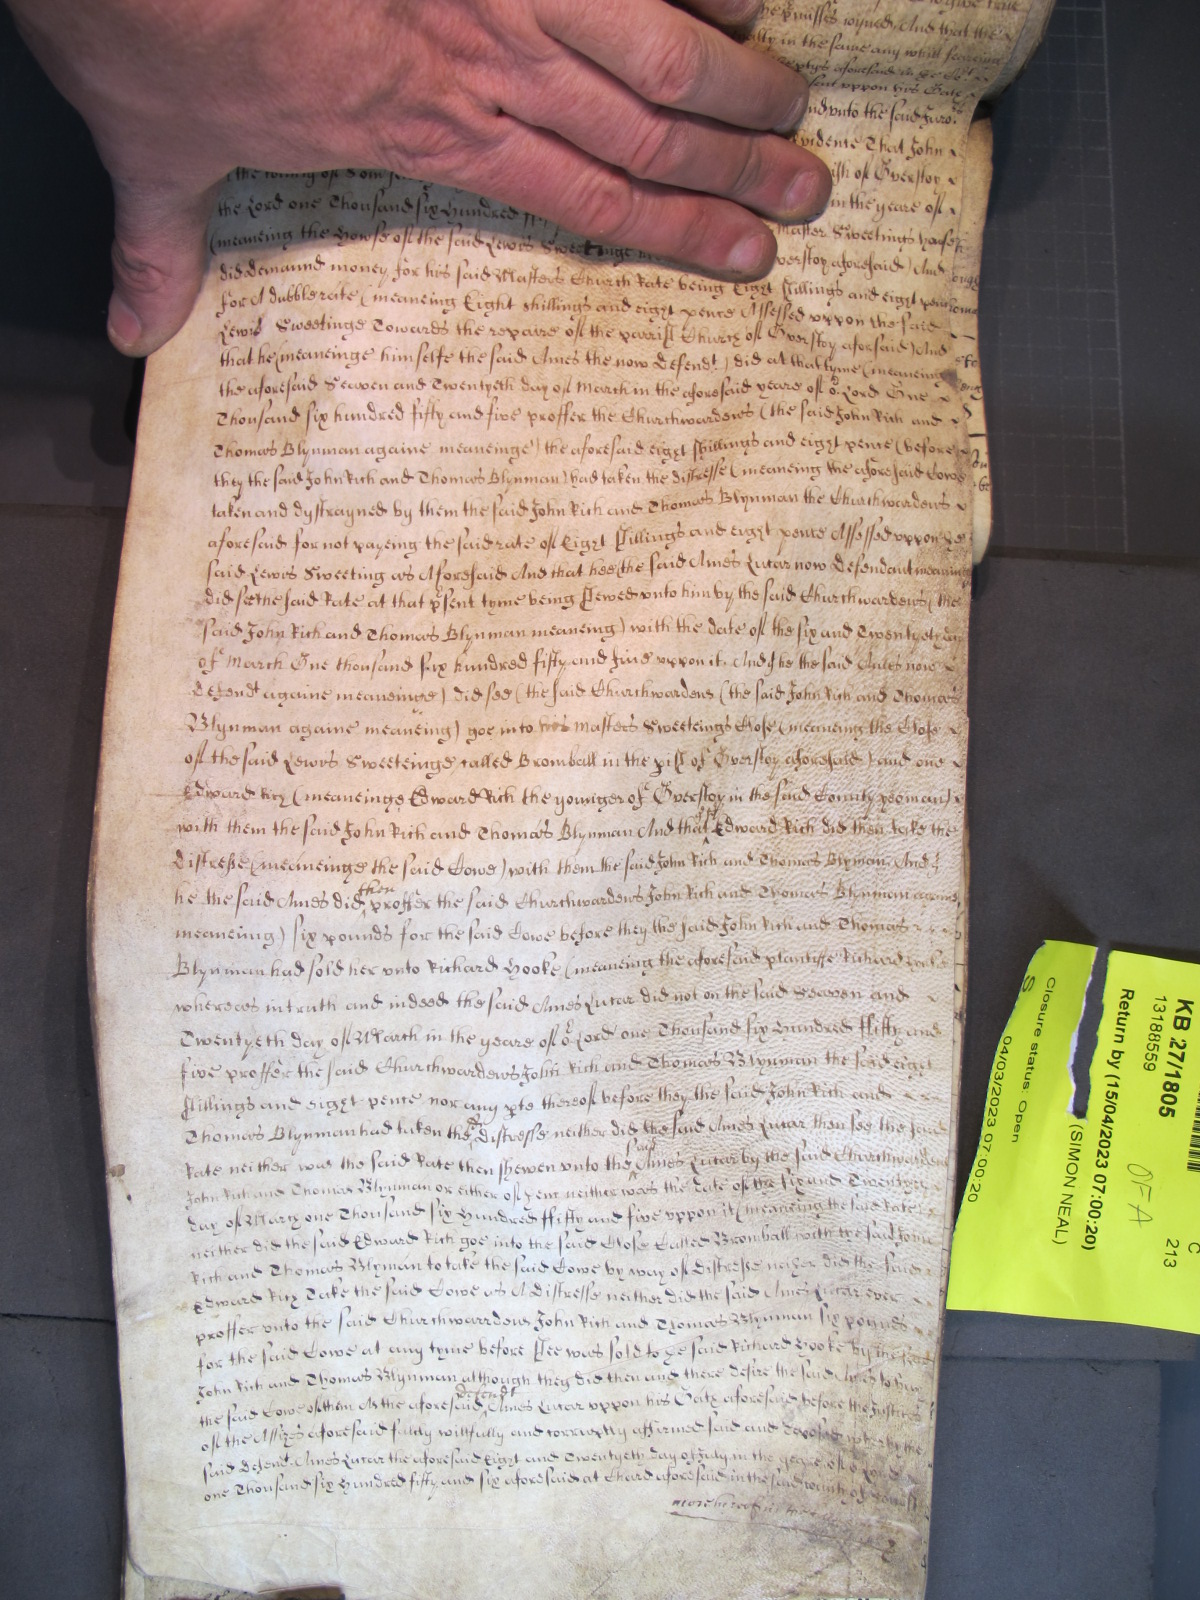 the pmisses ioyned And that the
in the same any whitt
aforesaid in the
upon his Oath
and unto the said Juro
evidence That John
of Overstoy
the Lord one Thousand six Hundred in the yeare of
(meaneing the Howse of the said Lewis Sweetinge Master Sweetings howse
did demaund money for his said Masters Church Rate being Eight shillings and eight pence
for A dubble rate (meaneing Eight shillings and eight pence Assessed uppon the said
Lewis Sweetinge Towards the repaire of the parrish Church of Overstoy aforsaid) And
that he (meaneinge himselfe the said Ames the now Defendt) did at that tyme (meaneing
the aforesaid Seaven and Twentyeth day of March in the aforesaid yeare of or Lord One
Thousand six hundred fifty and five proffer the Churchwardens (the said John Rich and
Thomas Blynman againe meaneinge) the aforesaid eight shillings and eight pence (before
they the said John Rich and Thomas Blynman) had taken the distresse (meaneing the aforesaid Cowe
taken and dystrayned by them the said John Rich and Thomas Blynman the Churchwardens
aforesaid for not payeing the said rate of Eight shillings and eight pence Assessed uppon the
said Lewis Sweeting as Aforesaid And that hee (the said Ames Lutar now Defendant meaning
did see the said Rate at that psent tyme being shewed unto him by the said Churchwardens (the
said John Rich and Thomas Blynman meaneing) with the date of the six and Twentyeth day
of March One thousand six hundred fifty and five uppon it. And he the said Ames now
Defendt againe meaneinge) did see (the said Churchwardens (the said John Rich and Thomas
Blynman againe meaneing) goe into his Masters Sweeteings Close (meaneing the Close
of the said Lewis Sweeteinge called Bromball in the pish of Overstoy aforesaid) and one
Edward Rich (meaneinge Edward Rich the younger of Overstoy in the said County yeoman)
with them the said John Rich and Thomas Blynman And that Edward Rich did then take the
distresse (meaneinge the said Cowe) with them the said John Rich and Thomas Blynman. And
he the said Ames did then proffer the said Churchwardens John Rich and Thomas Blynman againe
meaneing) six pounds for the said Cowe before they the said John Rich and Thomas
Blynman had sold her unto Richard Hooke (meaneing the aforesaid plantiffe Richard Hooke
whereas in truth and indeed the said Ames Lutar did not on the said Seaven and
Twentyeth day of March in the yeare of or Lord one Thousand six Hundred ffifty and
five proffer the said Churchwardens John Rich and Thomas Blynman the said eight
shillings and eight pence nor any pte thereof before they the said John Rich and
Thomas Blynman had taken the distresse neither did the said Ames Lutar then see the said
Rate neither was the said Rate then shewen unto the said Ames Lutar by the said Churchwardens
John Rich and Thomas Blynman or either of them neither was the date of the six and Twentyeth
day of March one Thousand six Hundred ffifty and five uppon it (meaneing the said Rate)
neither did the said Edward Rich goe into the said Close Called Bromball with the said John
Rich and Thomas Blynman to take the said Cowe by way of distresse neither did the said
Edward Rich Take the said Cowe as A distresse neither did the said Ames Lutar ever
proffer unto the said Churchwardens John Rich and Thomas Blynman six pounds
for the said Cowe at any tyme before shee was sold to the said Richard Hooke by the said
John Rich and Thomas Blynman although they did then and there desire the said Ames to buy
the said Cowe of them As the aforesaid defendt Ames Lutar uppon his Oath aforesaid before the Justices
of the Assizes aforesaid falsly willfully and corruptly affirmed said and deposed wherby the
said Defendt Ames Lutar the aforesaid Eight and Twentyeth day of July in the yeare of or Lord
one Thousand six Hundred fifty and six aforesaid at Chard aforesaid in the said County of Somsett
more hereof in the
KB 27/1805
13188559
Return by (15/04/2023 07:00:20)
(SIMON NEAL)
Closure status: Open
04/03/2023 07:00:20
S
OFA
C
213